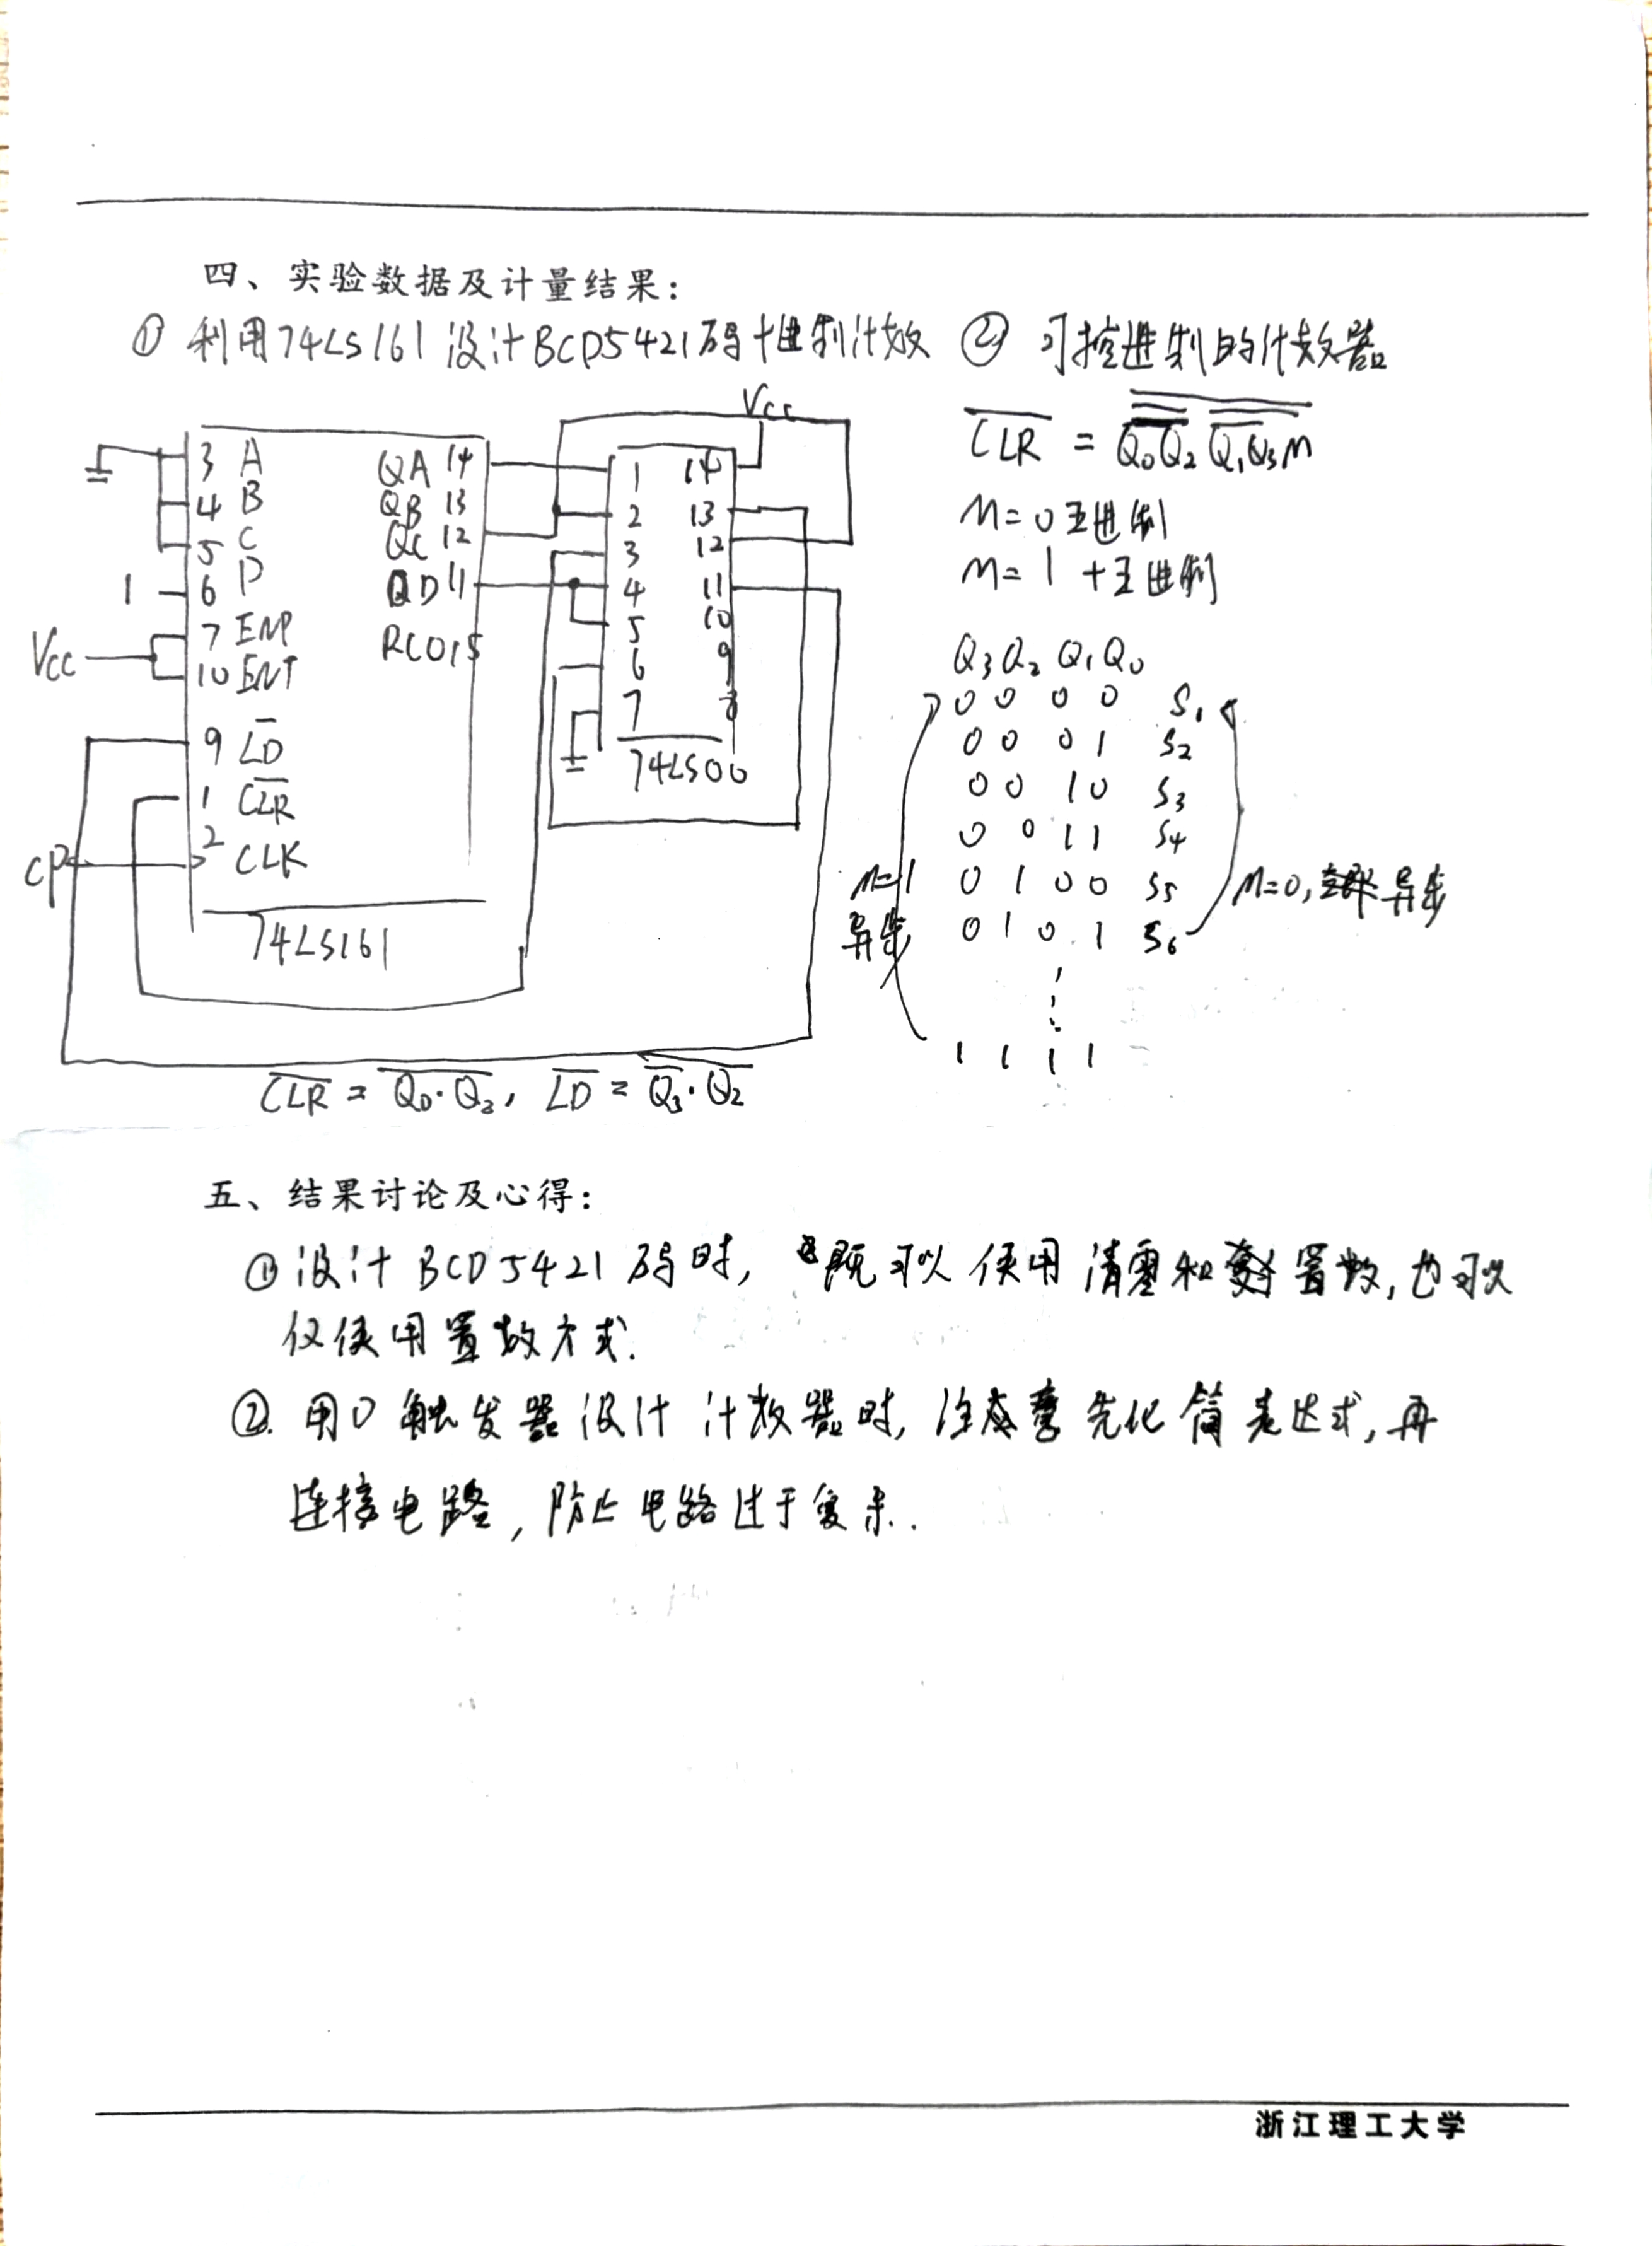 四、实验数据及计量结果：
① 利用74LS161设计BCD5421码十进制计数
② 可控进制的计数器
Vcc
3 A QA 14
4 B QB 13
5 C QC 12
1 6 D QD 11
7 ENP RCO 15
Vcc 10 ENT
9 LD
1 CLR
2 CLK
CP
74LS161
1 14
2 13
3 12
4 11
5 10
6 9
7 8
74LS00
CLR = Q0·Q2, LD = Q3·Q2
CLR = Q0Q2 Q1Q3M
M=0 五进制
M=1 十五进制
Q3 Q2 Q1 Q0
0 0 0 0 S1
0 0 0 1 S2
0 0 1 0 S3
0 0 1 1 S4
0 1 0 0 S5
0 1 0 1 S6
1 1 1 1
M=1
异步
M=0, 异步
五、结果讨论及心得：
① 设计BCD5421码时, 既可以使用清零和置数, 也可以
仅使用置数方式.
②. 用D触发器设计计数器时, 注意要先化简表达式, 再
连接电路, 防止电路过于复杂.
浙江理工大学